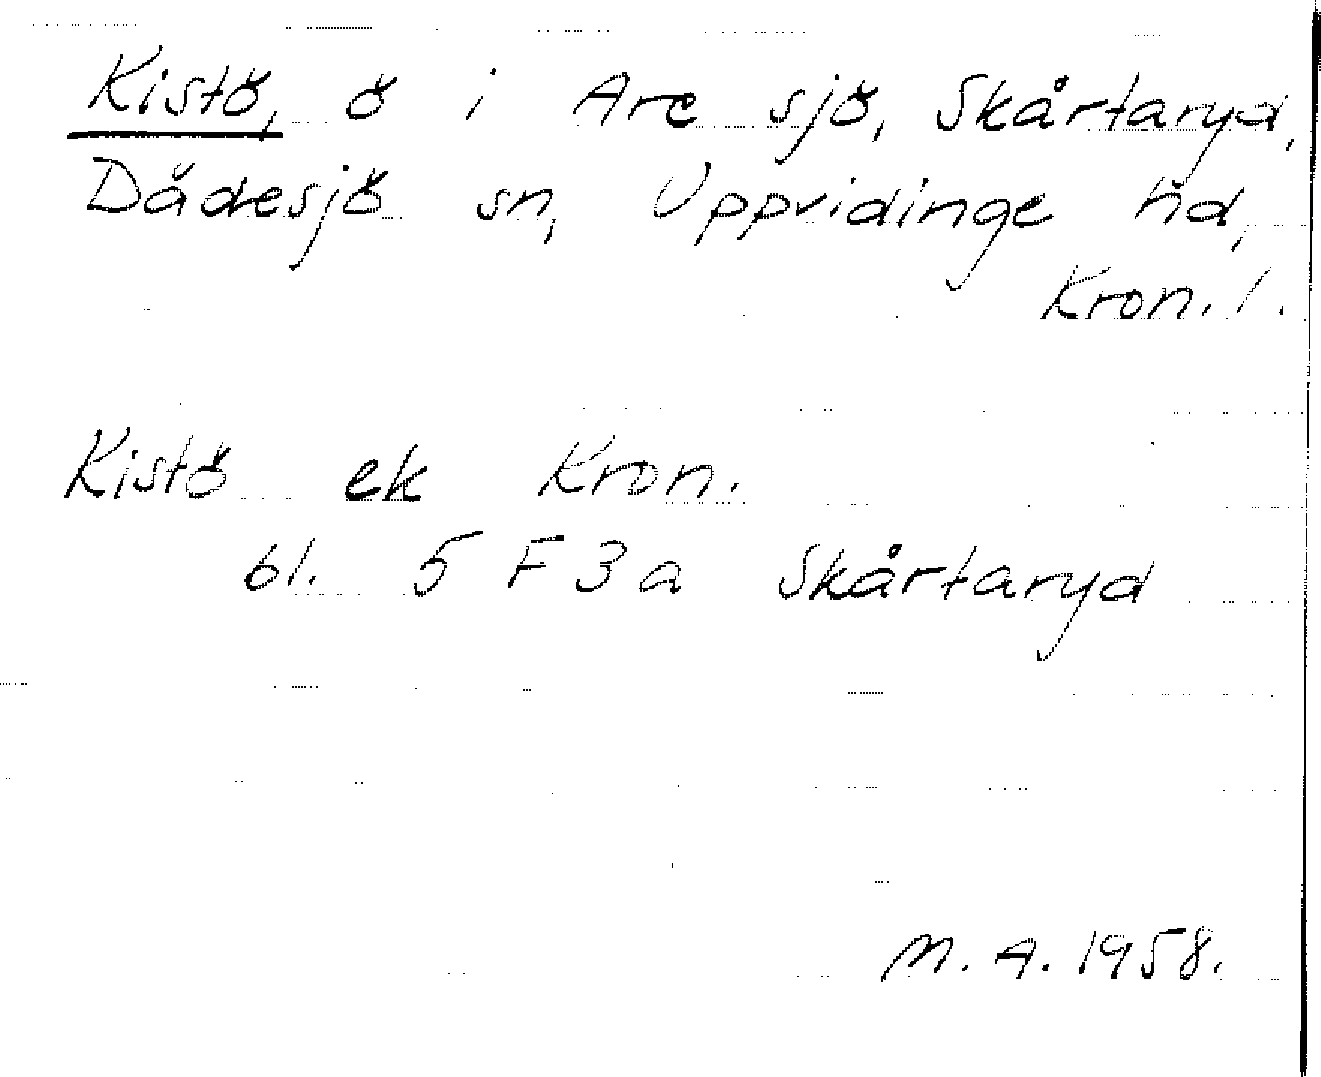 Kistö, ö i Are sjö, Skårtaryd,
Dädesjö sn, Uppvidinge hd,
Kron. l.
Kistö ek Kron.
bl. 5 F 3a Skårtaryd
M. A. 1958.